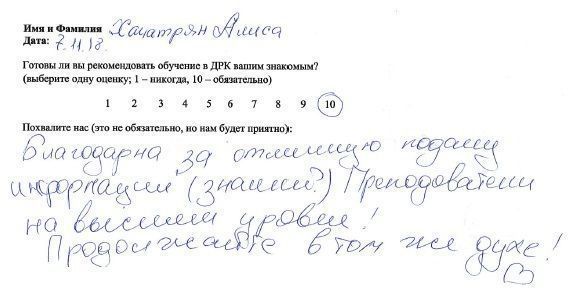 Имя и Фамилия Хачатрян Алиса
Дата: 7.11.18.
Готовы ли вы рекомендовать обучение в ДРК вашим знакомым?
(выберите одну оценку; 1 – никогда, 10 – обязательно)
1 2 3 4 5 6 7 8 9 10
Похвалите нас (это не обязательно, но нам будет приятно):
Благодарна за отличную подачу
информации (знаний?) Преподователи
на высшем уровне!
Продолжайте в том же духе!